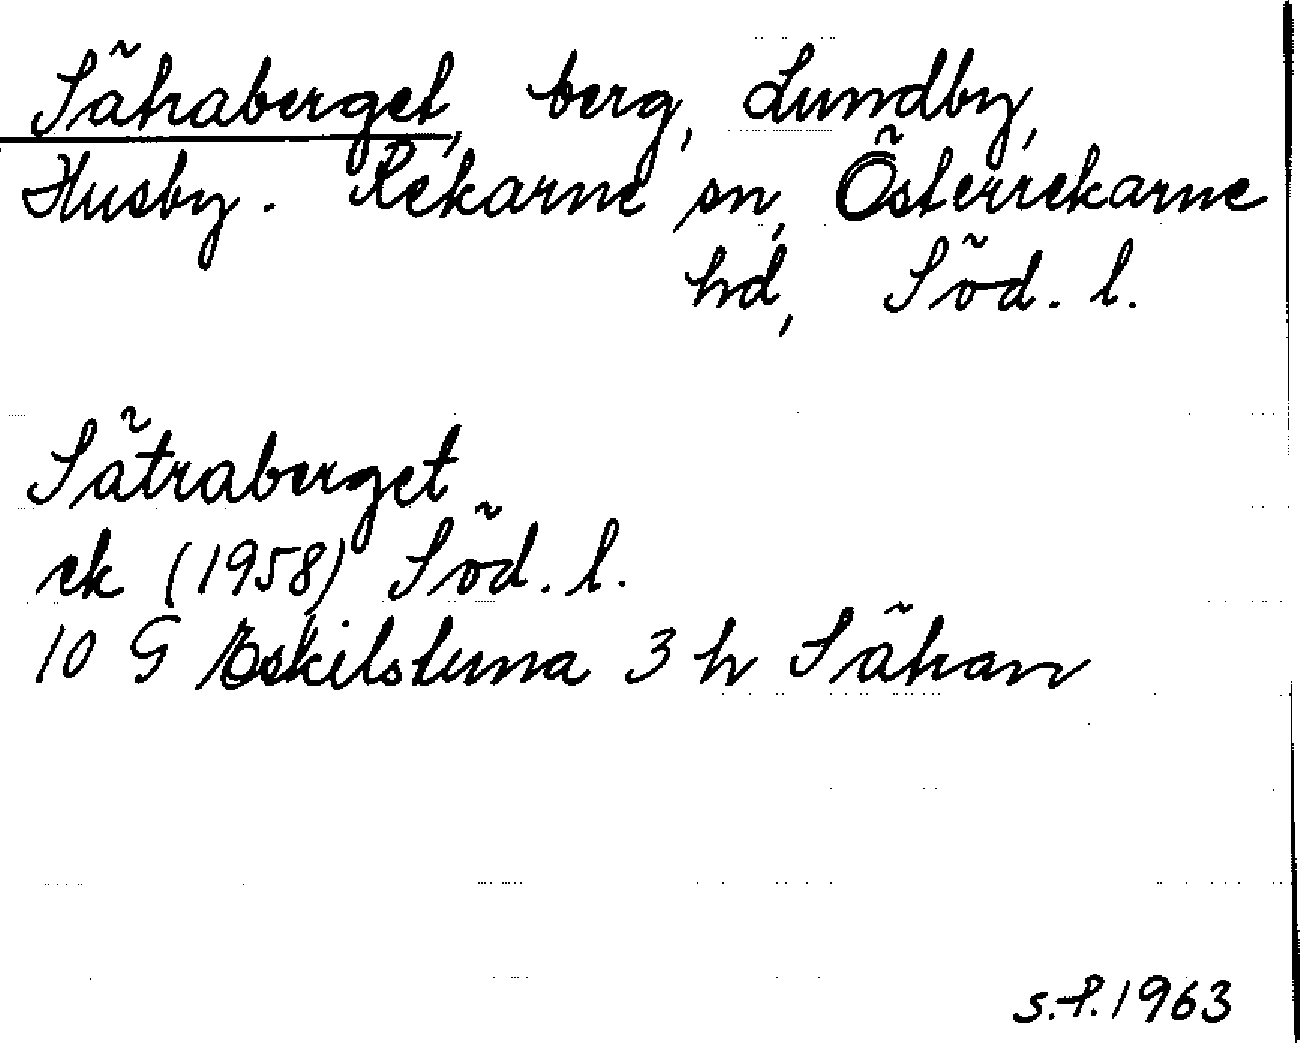 Sätraberget, berg, Lundby,
Husby-Rekarne sn, Österrekarne
hd, Söd. l.
Sätraberget
ek (1958) Söd. l.
10 G Eskilstuna 3 h Sätran
s.f. 1963